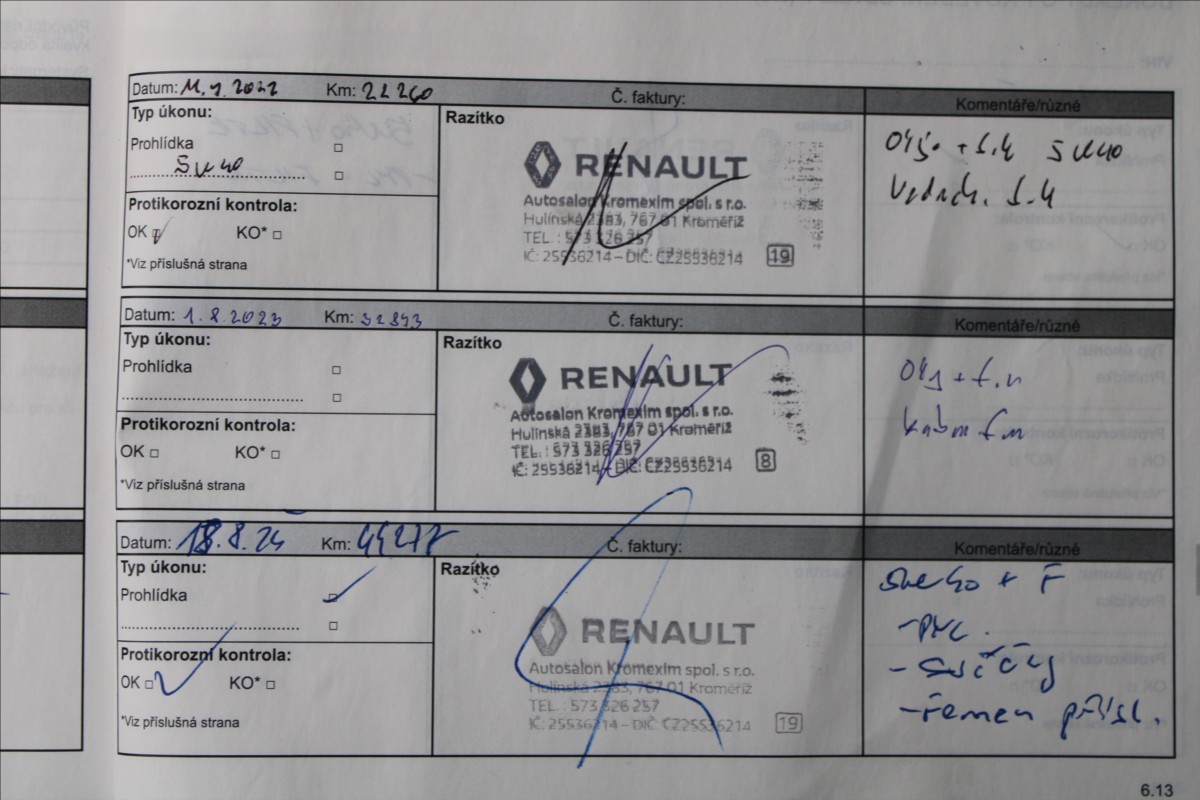 Datum: 11.7.2022 Km: 22260 Č. faktury: Komentáře/různé
Typ úkonu: Razítko
Prohlídka □
□
Protikorozní kontrola:
OK □ KO* □
*Viz příslušná strana
RENAULT
Autosalon Kromexim spol. s r.o.
Hulínská 2383, 767 01 Kroměříž
TEL.: 573 326 257
IČ: 25536214 – DIČ: CZ25536214 19
Datum: 1.8.2023 Km: 32843 Č. faktury: Komentáře/různé
Typ úkonu: Razítko
Prohlídka □
□
Protikorozní kontrola:
OK □ KO* □
*Viz příslušná strana
RENAULT
Autosalon Kromexim spol. s r.o.
Hulínská 2383, 767 01 Kroměříž
TEL.: 573 326 257
IČ: 25536214 – DIČ: CZ25536214 8
Datum: 18.8.24 Km: 44277 Č. faktury: Komentáře/různé
Typ úkonu: Razítko
Prohlídka □
□
Protikorozní kontrola:
OK □ KO* □
*Viz příslušná strana
RENAULT
Autosalon Kromexim spol. s r.o.
Hulínská 2383, 767 01 Kroměříž
TEL.: 573 326 257
IČ: 25536214 – DIČ: CZ25536214 19
+ F
- svíčky
- řemen přísl.
6.13